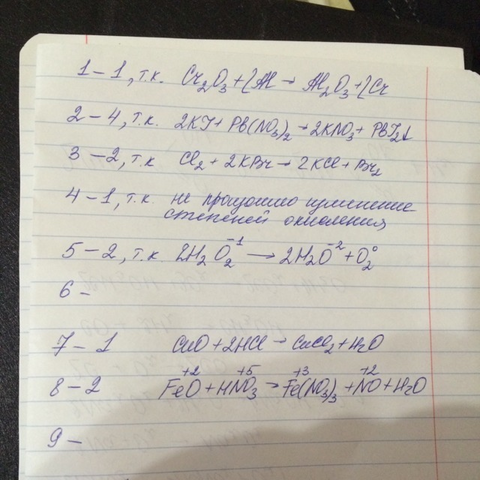 1 – 1, т.к. Cr₂O₃ + 2Al → Al₂O₃ + 2Cr
2 – 4, т.к. 2KJ + Pb(NO₃)₂ → 2KNO₃ + PbJ₂↓
3 – 2, т.к Cl₂ + 2KBr → 2KCl + Br₂
4 – 1, т.к не произошло изменение
степеней окисления
5 – 2, т.к 2H₂O₂⁻¹ → 2H₂O⁻² + O₂⁰
6 –
7 – 1 CuO + 2HCl → CuCl₂ + H₂O
8 – 2 Fe⁺²O + HN⁺⁵O₃ → Fe⁺³(NO₃)₃ + N⁺²O + H₂O
9 –